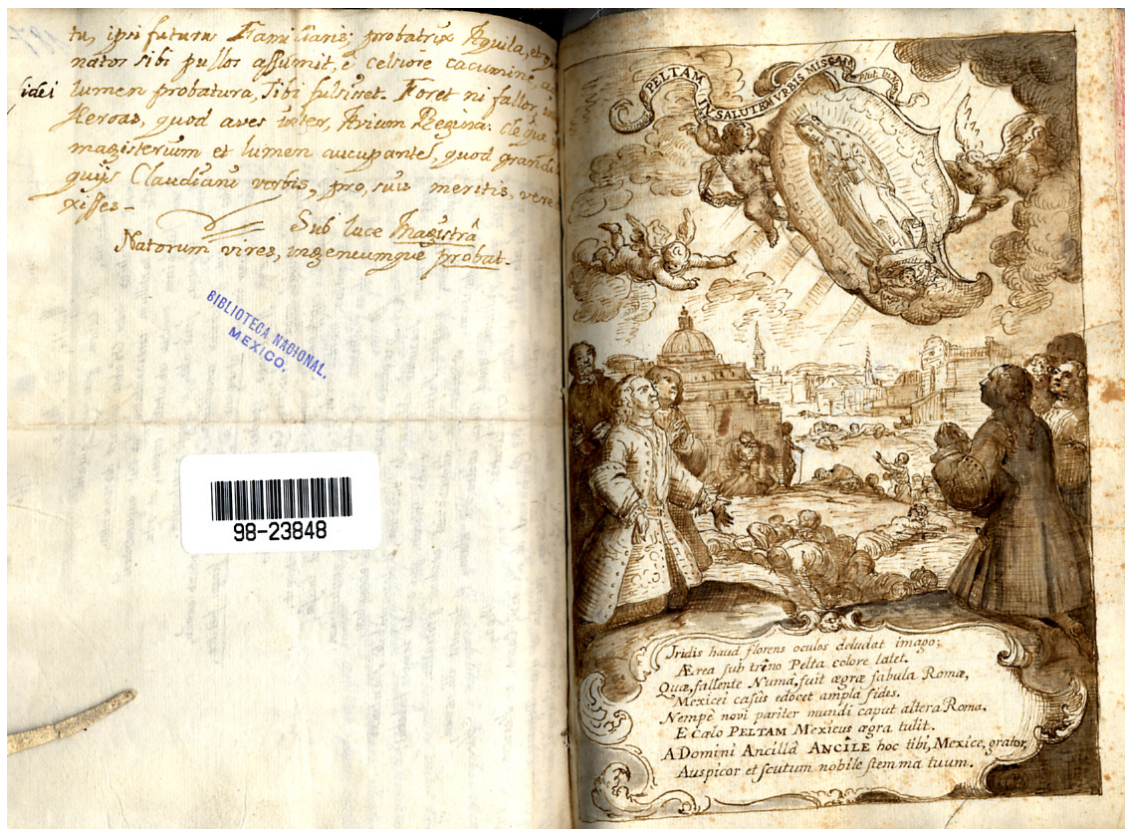 tu, ipsi futura Familiaris; probatrix Aquila, et
natos sibi pullos assumit, è celsiore cacumine
fidei
lumen probatura, sibi fulsisset. Foret ni fallor,
Heroas, quod aves inter, Avium Regina
magisterium et lumen aucupantes, quod grandi
quijs Claudiani verbis, pro, suis meritis,
xisses-
Sub luce Magistrâ
Natorum vires, ingeniumque probat.
BIBLIOTECA NACIONAL.
MEXICO.
98-23848
PELTAM
IN SALUTEM VRBIS MISSAM
Iridis haud florens oculos deludat imago;
Ærea sub trino Pelta colore latet.
Quæ, fallente Numa, fuit ægræ fabula Romæ,
Mexicei casûs edocet ampla fides.
Nempè novi pariter mundi caput altera Roma,
E Cælo PELTAM Mexicus ægra tulit.
A Domini Ancillâ ANCÎLE hoc tibi, Mexice, grator,
Auspicor et scutum nobile stemma tuum.